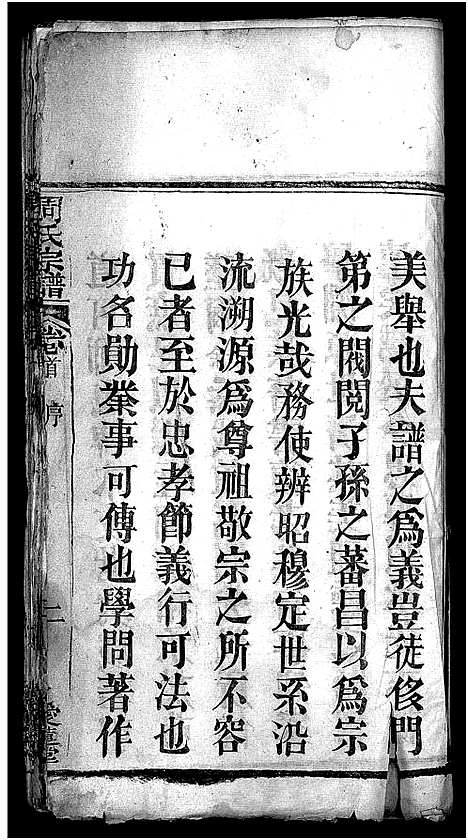 美舉也夫譜之為義豈徒侈門
第之閥閱子孫之蕃昌以為宗
族光哉務使辨昭穆定世系沿
流溯源為尊祖敬宗之所不容
已者至於忠孝節義行可法也
功名勛業事可傳也學問著作
周氏宗譜
卷首
序
二
愛蓮堂